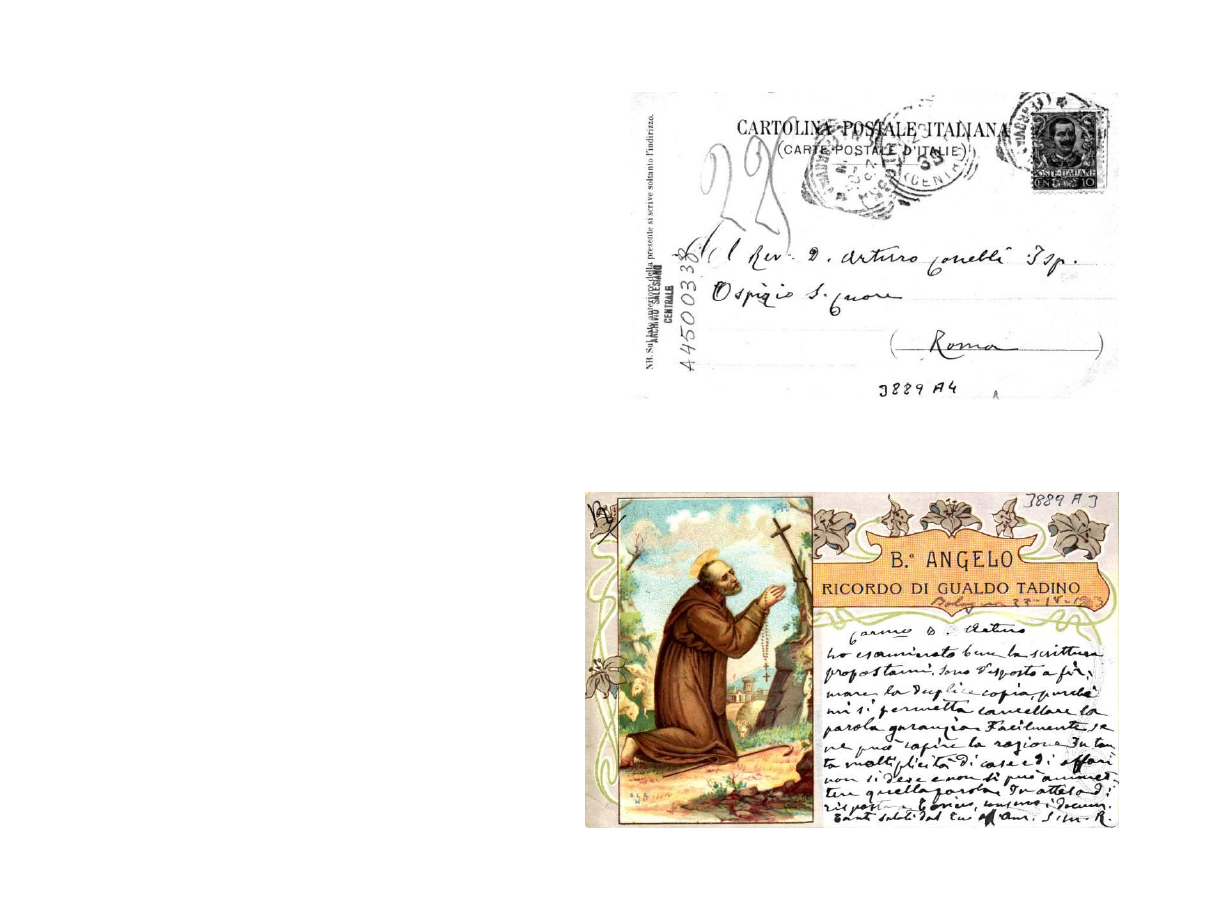 CARTOLINA POSTALE ITALIANA
(CARTE POSTALE D'ITALIE)
POSTE ITALIANE
CENT 10
NB. Sul lato anteriore della presente si scrive soltanto l'indirizzo.
ARCHIVIO SALESIANO
CENTRALE
A4500338
22
Al Rev. D. Arturo Conelli Isp.
Ospizio S. Cuore
(Roma)
3889 A4
3889 A3
B.° ANGELO
RICORDO DI GUALDO TADINO
Bologna 23 1903
Carmo D. Arturo
ho esaminato bene la scrittura
propostami. Sono disposto a fir-
mare la duplice copia, purchè
mi si permetta cancellare la
parola garanzia. Facilmente se
ne può capire la ragione. In tan
ta molteplicità di case e di affari
non si deve e non si può ammet-
tere quella parola. In attesa di
risposta a Torino, i docum.
Tanti saluti dal tuo aff. am.